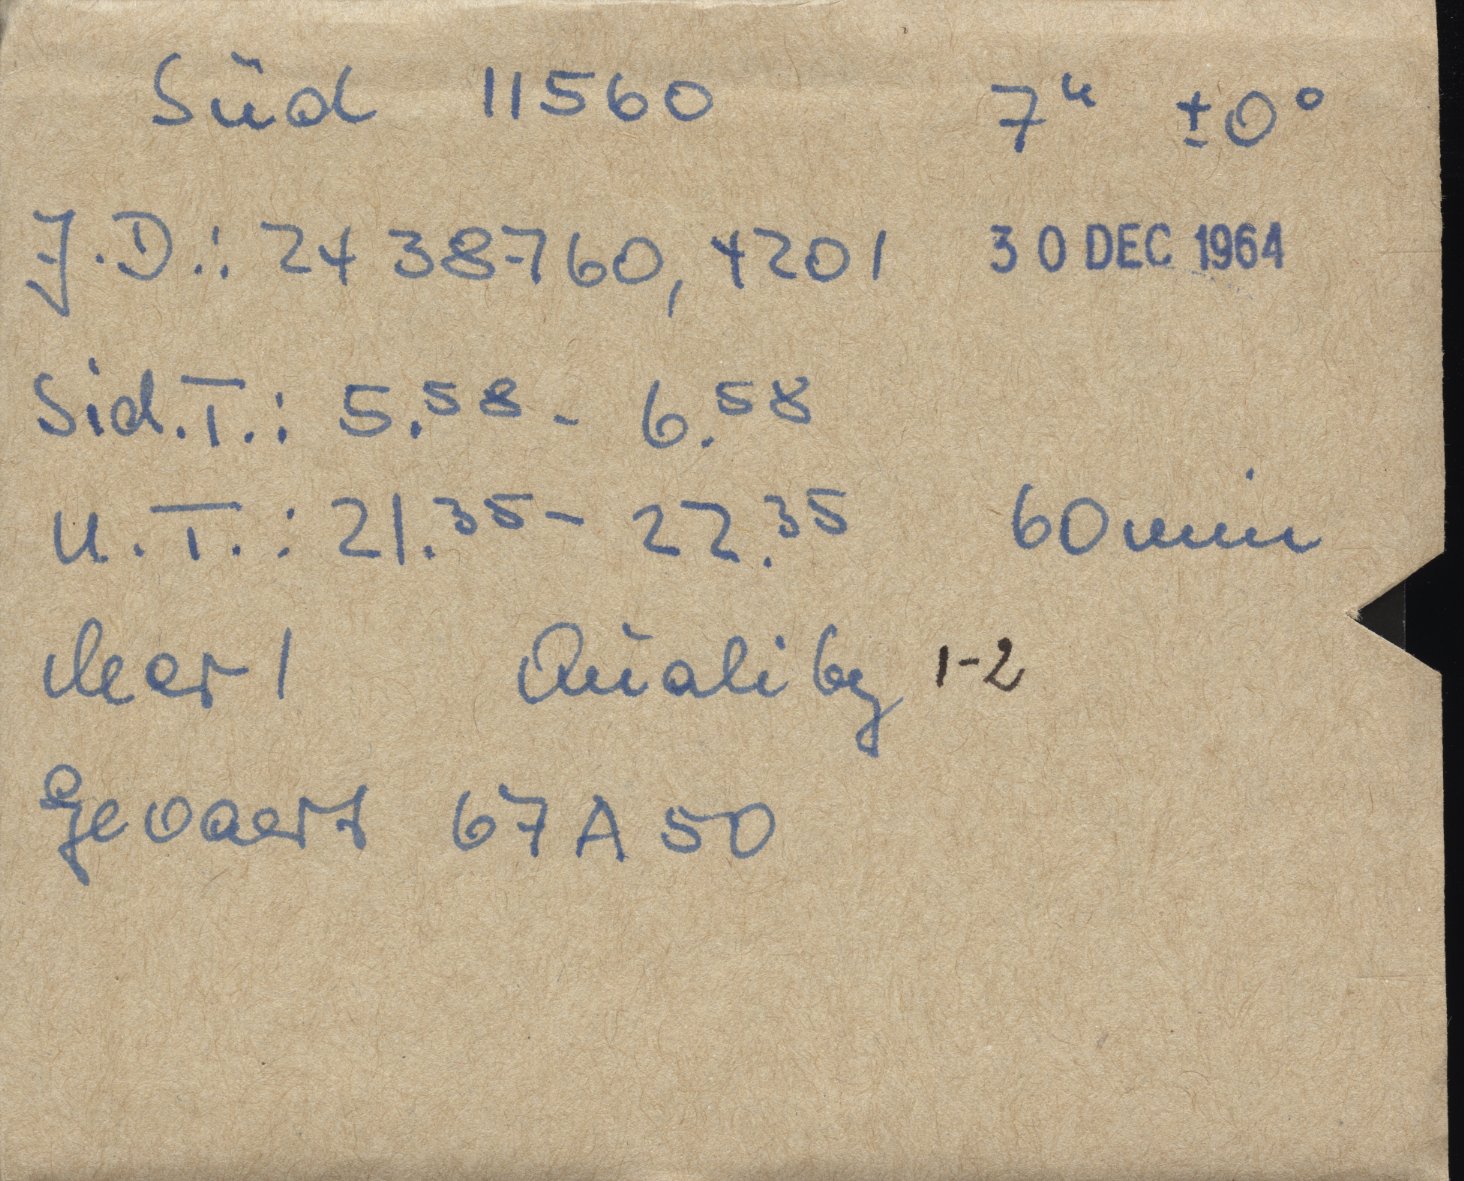 Süd 11560 7ʰ ±0°
J.D.: 2438760,4201 30 DEC 1964
Sid.T.: 5.⁵⁸ - 6.⁵⁸
U.T.: 21.³⁵ - 22.³⁵ 60 min
clear 1 Quality 1-2
Gevaert 67 A 50